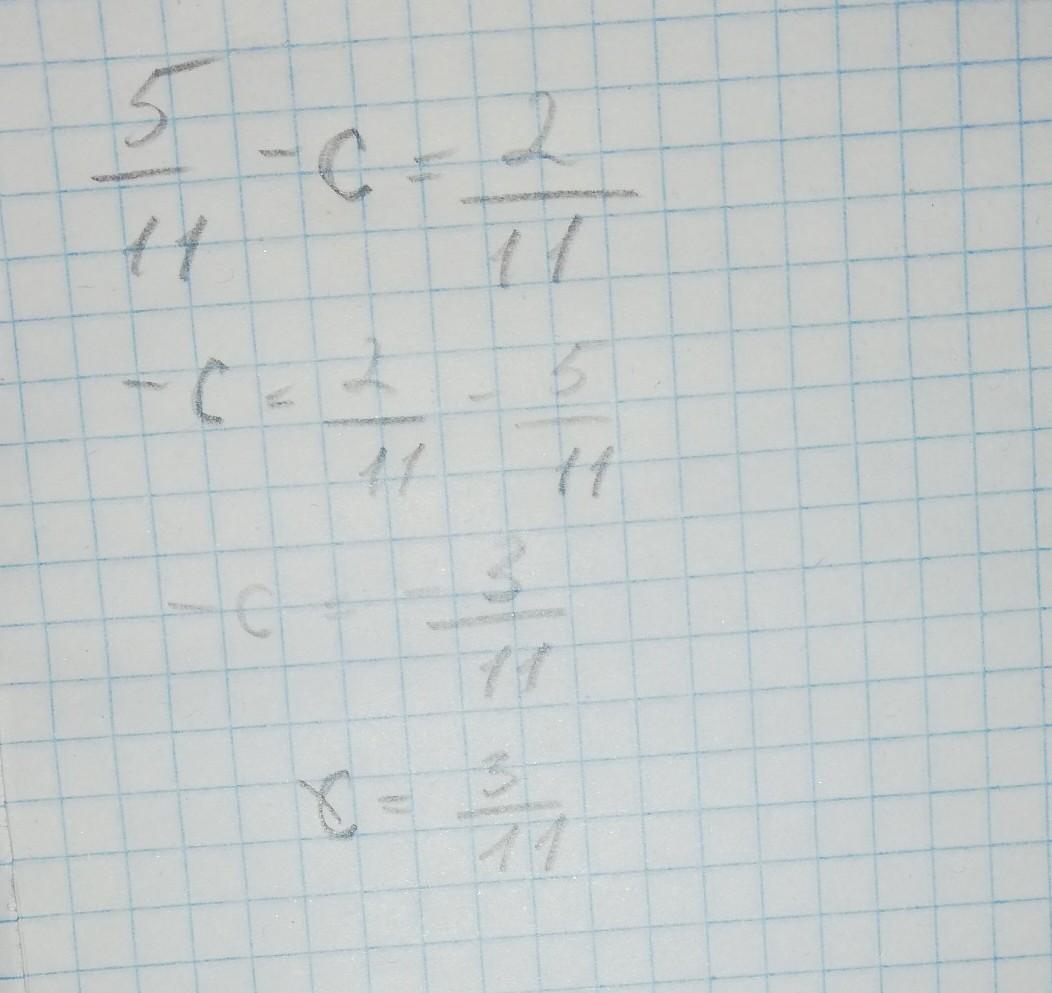 5/11 - c = 2/11
-c = 2/11 - 5/11
-c = -3/11
c = 3/11